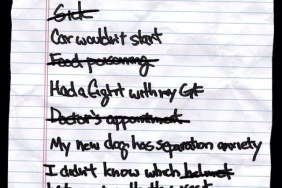 Sick
Car wouldn't start
Food poisoning
Had a fight with my GF
Doctor's appointment
My new dog has separation anxiety
I didn't know which helmet